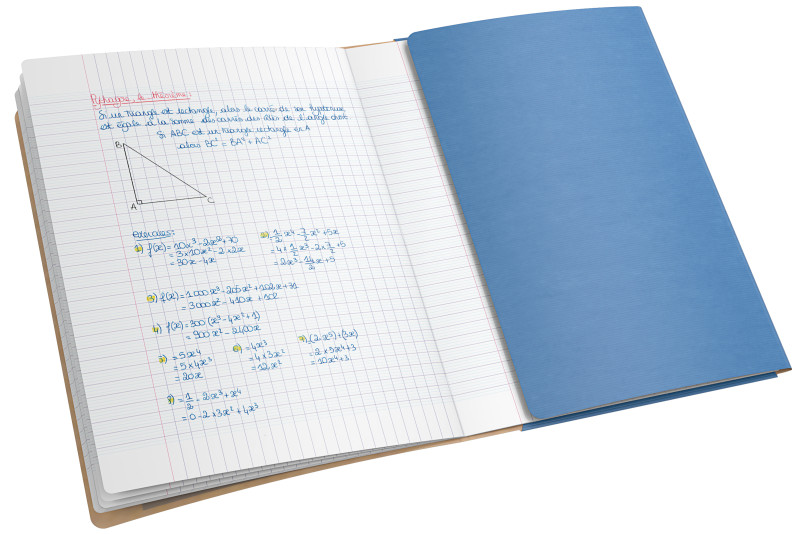 Pythagore, le théorème:
Si un triangle est rectangle, alors le carré de son hypoténuse
est égale à la somme des carrés des côtés de l'angle droit
Si ABC est un triangle rectangle en A
alors BC² = BA² + AC²
B
A
C
Exercices:
1) f(x) = 10x³ - 2x² + 10
= 3 × 10x² - 2 × 2x
= 30x - 4x
2) 1/2 x⁴ - 7/2 x² + 5x
= 4 × 1/2 x³ - 2 × 7/2 + 5
= 2x³ - 14/2 x + 5
3) f(x) = 1000x³ - 205x² + 102x + 31
= 3000x² - 410x + 102
4) f(x) = 300 (x³ - 4x² + 1)
= 900x² - 2400x
5) = 5x⁴
= 5 × 4x³
= 20x
6) = 4x³
= 4 × 3x²
= 12x²
7) (2x⁵) + (3x)
= 2 × 5x⁴ + 3
= 10x⁴ + 3
8) = 1/2 - 2x³ + x⁴
= 0 - 2 × 3x² + 4x³